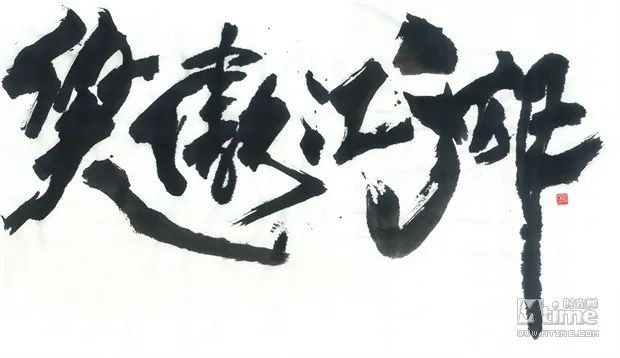 笑傲江湖
时光网
Mtime
WWW.MTIME.COM